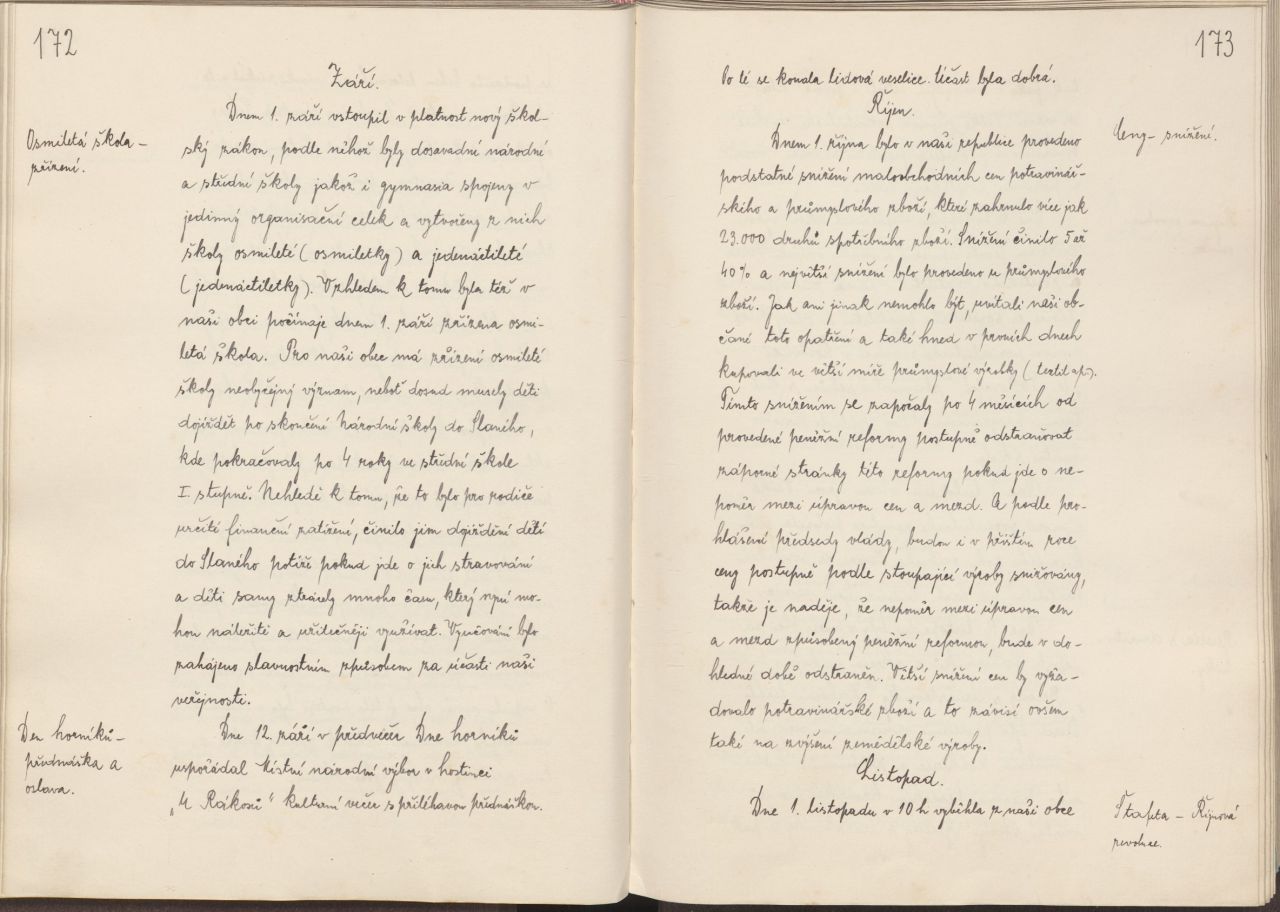 172
Září.
Osmiletá škola –
zřízení.
Dnem 1. září vstoupil v platnost nový škol-
ský zákon, podle něhož byly dosavadní národní
a střední školy jakož i gymnasia spojeny v
jedinný organisační celek a vytvořeny z nich
školy osmileté (osmiletky) a jedenáctileté
(jedenáctiletky). Vzhledem k tomu byla též v
naší obci počínaje dnem 1. září zřízena osmi-
letá škola. Pro naši obec má zřízení osmileté
školy neobyčejný význam, neboť dosud musely děti
dojíždět po skončení Národní školy do Slaného,
kde pokračovaly po 4 roky ve střední škole
I. stupně. Nehledě k tomu, že to bylo pro rodiče
určité finanční zatížení, činilo jim dojíždění dětí
do Slaného potíže pokud jde o jich stravování
a děti samy ztrácely mnoho času, který nyní mo-
hou náležitě a užitečněji využívat. Vyučování bylo
zahájeno slavnostním způsobem za účasti naší
veřejnosti.
Den horníků –
přednáška a
oslava.
Dne 12. září v předvečer Dne horníků
uspořádal Místní národní výbor v hostinci
„U Rákosů“ kulturní večer s přiléhavou přednáškou.
173
Po té se konala lidová veselice. Účast byla dobrá.
Říjen.
Ceny – snížení.
Dnem 1. října bylo v naší republice provedeno
podstatné snížení maloobchodních cen potravinář-
ského a průmyslového zboží, které zahrnulo více jak
23.000 druhů spotřebního zboží. Snížení činilo 5 až
40% a největší snížení bylo provedeno u průmyslového
zboží. Jak ani jinak nemohlo být, uvítali naši ob-
čané toto opatření a také hned v prvních dnech
kupovali ve větší míře průmyslové výrobky (textil ap.).
Tímto snížením se započaly po 4 měsících od
provedené peněžní reformy postupně odstraňovat
záporné stránky této reformy pokud jde o ne-
poměr mezi úpravou cen a mezd. A podle pro-
hlášení předsedy vlády, budou i v příštím roce
ceny postupně podle stoupající výroby snižovány,
takže je naděje, že nepoměr mezi úpravou cen
a mezd způsobený peněžní reformou, bude v do-
hledné době odstraněn. Větší snížení cen by vyža-
dovalo potravinářské zboží a to závisí ovšem
také na zvýšení zemědělské výroby.
Listopad.
Štafeta – Říjnová
revoluce.
Dne 1. listopadu v 10 h vyběhla z naší obce